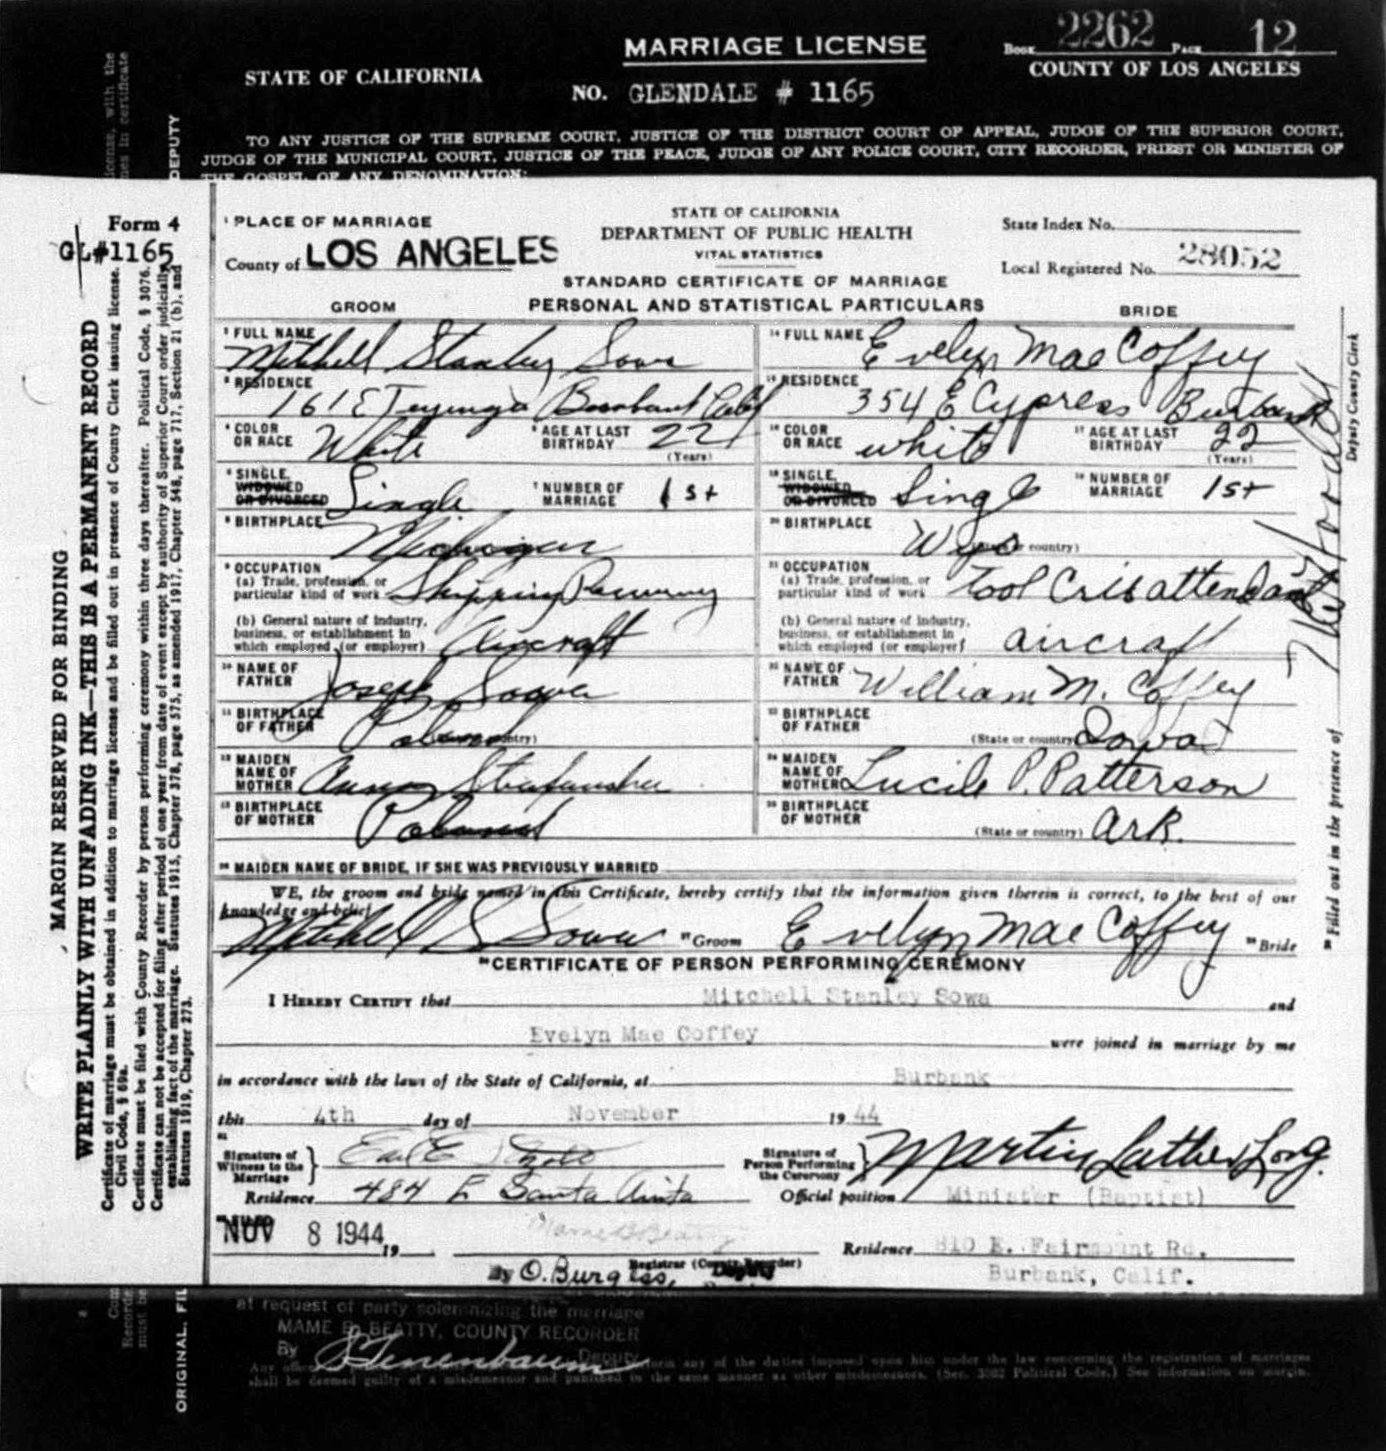 MARRIAGE LICENSE
BOOK 2262 PAGE 12
STATE OF CALIFORNIA
COUNTY OF LOS ANGELES
NO. GLENDALE # 1165
TO ANY JUSTICE OF THE SUPREME COURT, JUSTICE OF THE DISTRICT COURT OF APPEAL, JUDGE OF THE SUPERIOR COURT,
JUDGE OF THE MUNICIPAL COURT, JUSTICE OF THE PEACE, JUDGE OF ANY POLICE COURT, CITY RECORDER, PRIEST OR MINISTER OF
THE GOSPEL OF ANY DENOMINATION:
Form 4
GL#1165
MARGIN RESERVED FOR BINDING
WRITE PLAINLY WITH UNFADING INK—THIS IS A PERMANENT RECORD
Certificate of marriage must be obtained in addition to marriage license and be filled out in presence of County Clerk issuing license.
Civil Code, § 69a.
Certificate must be filed with County Recorder by person performing ceremony within three days thereafter. Political Code, § 3076.
Certificate can not be accepted for filing after period of one year from date of event except by authority of Superior Court order judicially
establishing fact of the marriage. Statutes 1915, Chapter 378, page 575, as amended 1917, Chapter 548, page 717, Section 21 (b), and
Statutes 1919, Chapter 273.
DEPUTY
ORIGINAL. FIL
1 PLACE OF MARRIAGE
County of LOS ANGELES
STATE OF CALIFORNIA
DEPARTMENT OF PUBLIC HEALTH
VITAL STATISTICS
STANDARD CERTIFICATE OF MARRIAGE
State Index No.
Local Registered No. 28052
GROOM PERSONAL AND STATISTICAL PARTICULARS BRIDE
2 FULL NAME Mitchell Stanley Sowa
3 RESIDENCE 161 E Tujunga Burbank Calif
4 COLOR OR RACE White 5 AGE AT LAST BIRTHDAY 22 (Years)
6 SINGLE, WIDOWED OR DIVORCED Single 7 NUMBER OF MARRIAGE 1st
8 BIRTHPLACE Michigan
9 OCCUPATION
(a) Trade, profession, or
particular kind of work Shipping
(b) General nature of industry,
business, or establishment in
which employed (or employer) Aircraft
10 NAME OF FATHER Joseph Sowa
11 BIRTHPLACE OF FATHER Poland
12 MAIDEN NAME OF MOTHER Anna
13 BIRTHPLACE OF MOTHER Poland
14 FULL NAME Evelyn Mae Coffey
15 RESIDENCE 354 E Cypress Burbank
16 COLOR OR RACE white 17 AGE AT LAST BIRTHDAY 22 (Years)
18 SINGLE, WIDOWED OR DIVORCED Single 19 NUMBER OF MARRIAGE 1st
20 BIRTHPLACE Wyo country)
21 OCCUPATION
(a) Trade, profession, or
particular kind of work Tool Crib attendant
(b) General nature of industry,
business, or establishment in
which employed (or employer) aircraft
22 NAME OF FATHER William M. Coffey
23 BIRTHPLACE OF FATHER (State or country) Iowa
24 MAIDEN NAME OF MOTHER Lucile P. Patterson
25 BIRTHPLACE OF MOTHER (State or country) Ark.
26 MAIDEN NAME OF BRIDE, IF SHE WAS PREVIOUSLY MARRIED
WE, the groom and bride named in this Certificate, hereby certify that the information given therein is correct, to the best of our
knowledge and belief
Mitchell S Sowa Groom Evelyn Mae Coffey Bride
CERTIFICATE OF PERSON PERFORMING CEREMONY
I HEREBY CERTIFY that Mitchell Stanley Sowa and
Evelyn Mae Coffey were joined in marriage by me
in accordance with the laws of the State of California, at Burbank
this 4th day of November 1944
Signature of Witness to the Marriage Earl E
Residence 484 E Santa Anita
Signature of Person Performing the Ceremony Martin Luther Long.
Official position Minister (Baptist)
FILED
NOV 8 1944 19
Mame B Beatty
Registrar (County Recorder)
By O. Burgess, Deputy
Residence 810 E. Fairmount Rd.
Burbank, Calif.
Filled out in the presence of
Deputy County Clerk
at request of party solemnizing the marriage
MAME B. BEATTY, COUNTY RECORDER
By Deputy
Any form any of the duties imposed upon him under the law concerning the registration of marriages
shall be deemed guilty of a misdemeanor and punished in the same manner as other misdemeanors. (Sec. 3082 Political Code.) See information on margin.